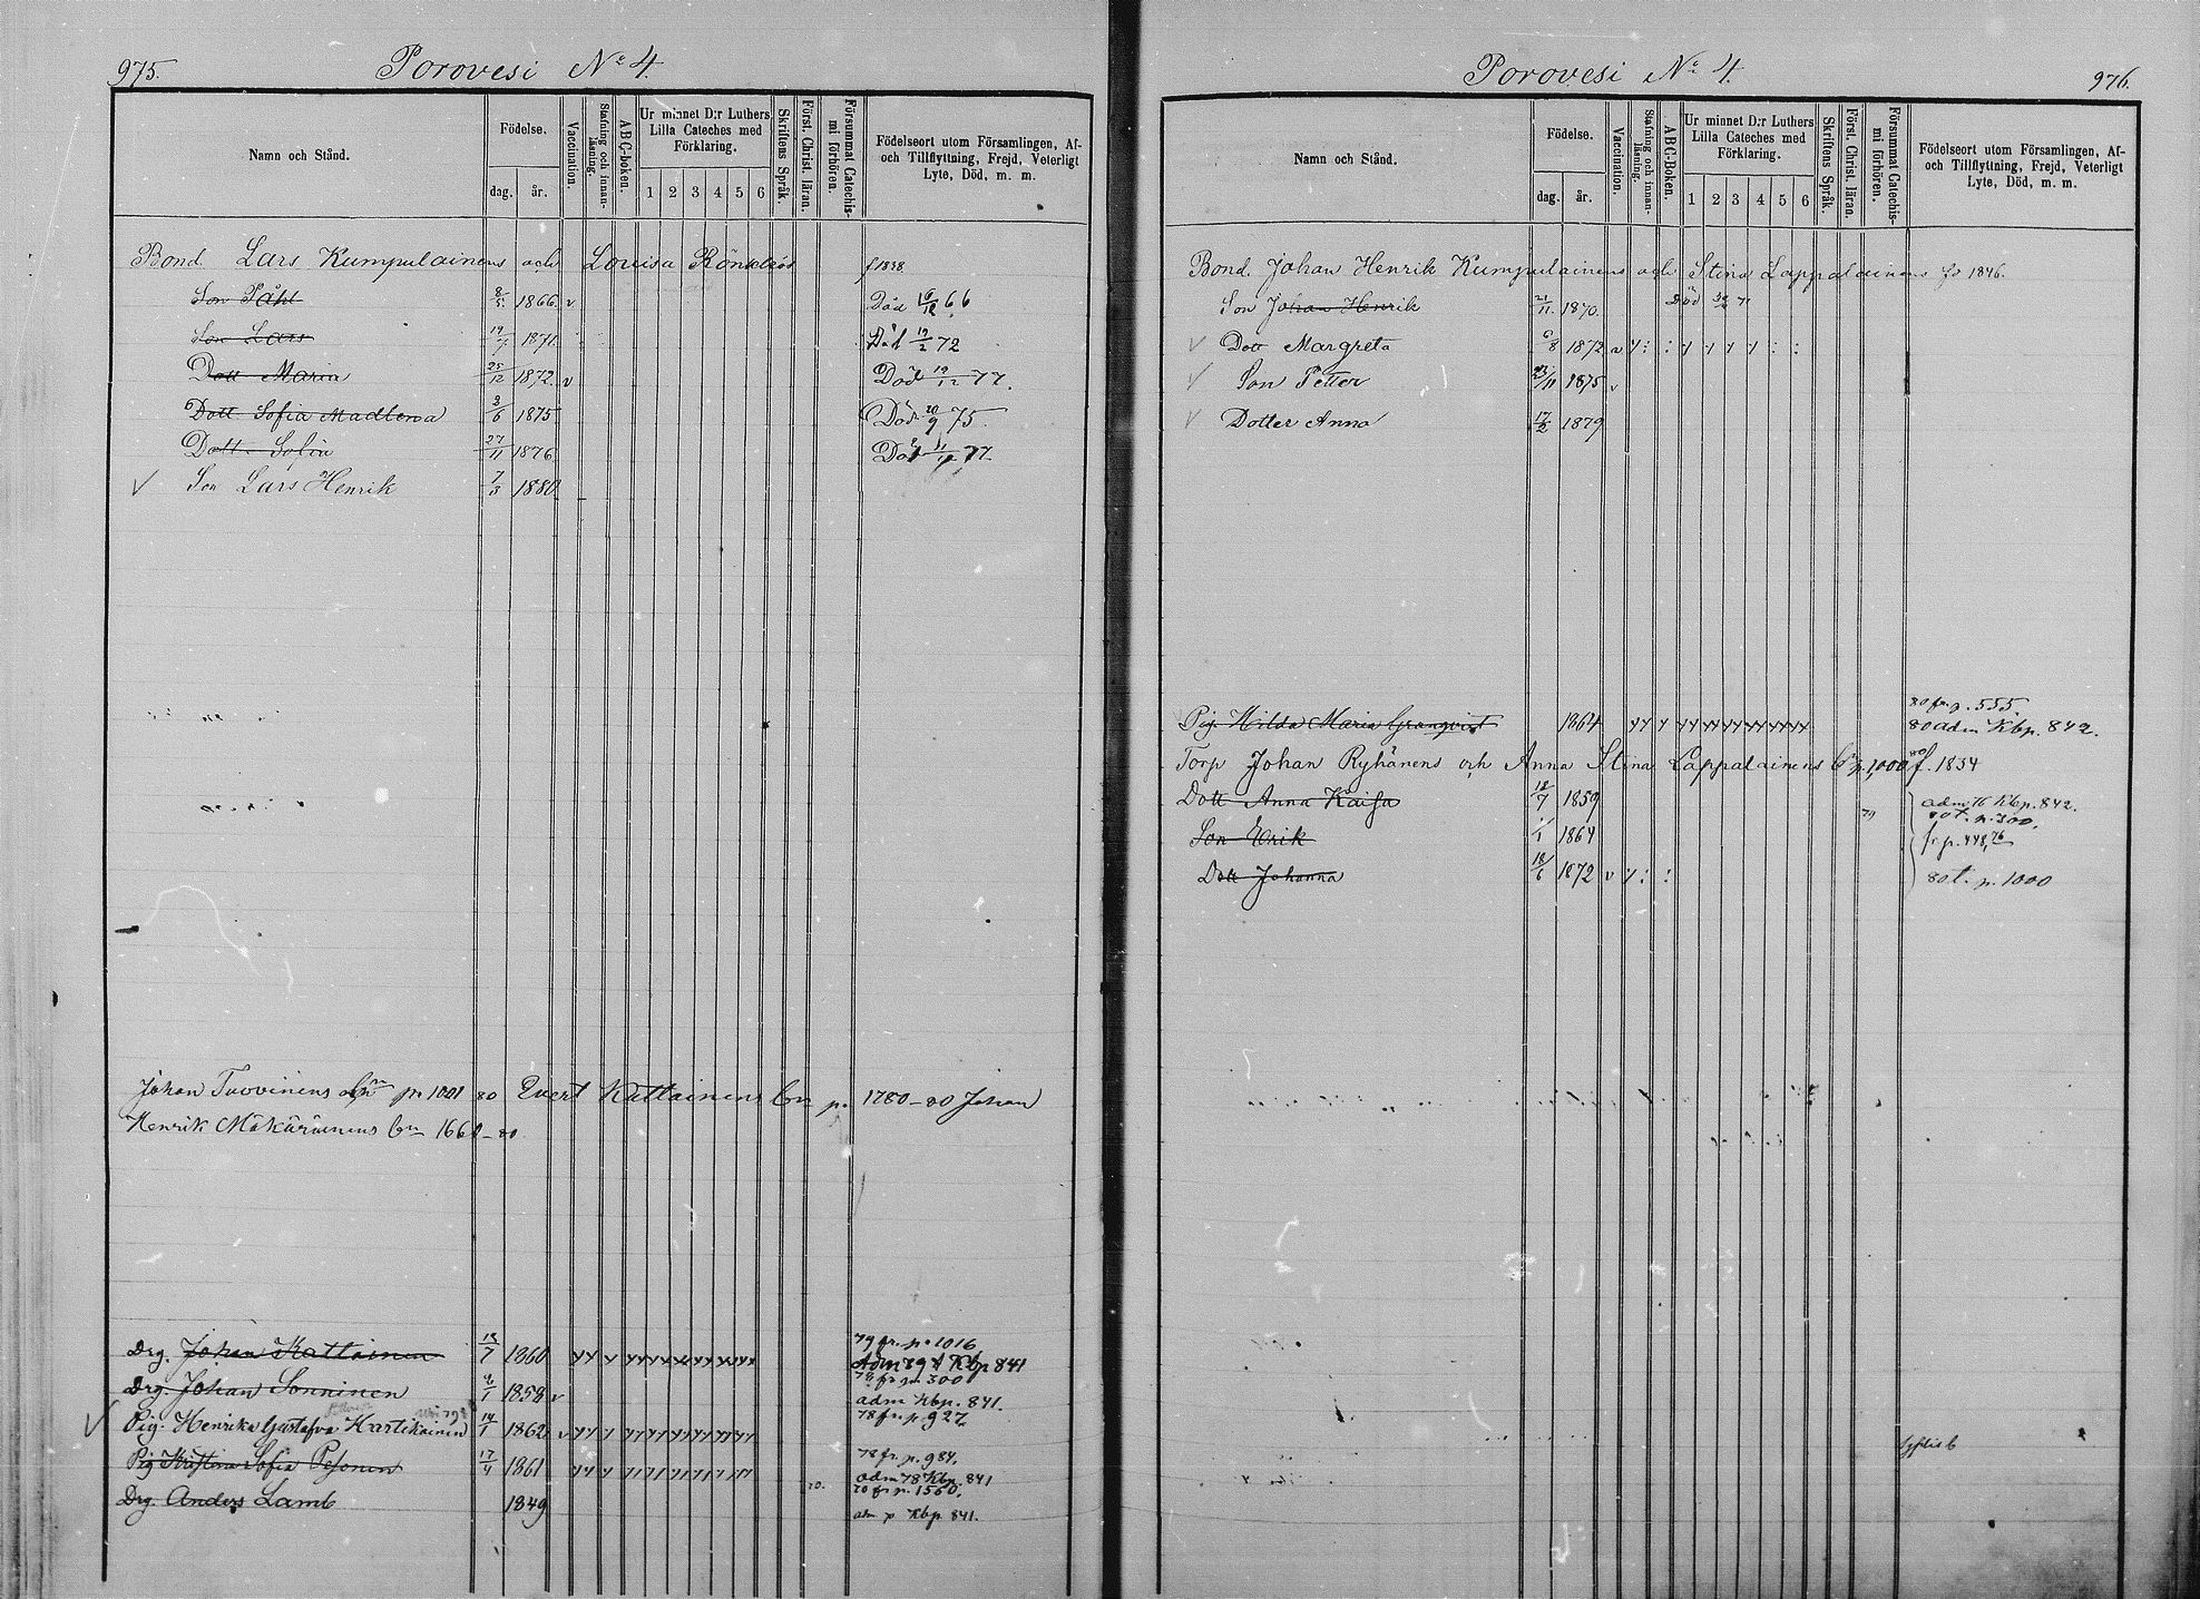 975.
Porovesi No 4.
Namn och Stånd.
Födelse.
dag.
år.
Vaccination.
Stafning och innanläsning.
ABC-boken.
Ur minnet D:r Luthers Lilla Cateches med Förklaring.
1 2 3 4 5 6
Skriftens Språk.
Först. Christ. läran.
Försummat Catechismi förhören.
Födelseort utom Församlingen, Af- och Tillflyttning, Frejd, Veterligt Lyte, Död, m. m.
Bond. Lars Kumpulainens och Lovisa f 1838
Son Påhl 8/5 1866 v Död 66
Son Lars 19/7 1871 Död 19/2 72
Dott Maria 25/12 1872 v Död 19/12 77.
Dott Sofia Madlena 3/6 1875 Död 20/9 75.
Dott Sofia 27/11 1876 Död 77
v Son Lars Henrik 7/3 1880
Johan Tuovinens p 1001 80 Evert Kattainens bn p. 1780-80 Johan
Henrik Mäkäräinens bn 1661-80
Drg. Johan Kattainen 13/7 1860 79 fr. p. 1016
Adm 79 Kbp 841
Drg. Johan Sonninen 1858 v 78 fr p. 300
adm Kbp. 841.
v Pig. Henrika Gustafva Hartikainen 14/1 1862 v 78 fr. p 927
Pig Kristina Sofia Pesonen 17/4 1861 78 fr. p. 984.
adm 78 Kbp. 841
Drg. Anders Lamb 1849 70 fr p. 1560.
adm p Kbp 841.
Porovesi No 4.
976.
Namn och Stånd.
Födelse.
dag.
år.
Vaccination.
Stafning och innanläsning.
ABC-Boken.
Ur minnet D:r Luthers Lilla Cateches med Förklaring.
1 2 3 4 5 6
Skriftens Språk.
Först. Christ. läran.
Försummat Catechismi förhören.
Födelseort utom Församlingen, Af- och Tillflyttning, Frejd, Veterligt Lyte, Död, m. m.
Bond. Johan Henrik Kumpulainens och Stina Lappalainens 1846.
Son Johan Henrik 21/11 1870. Död 71
v Dott Margreta 6/8 1872 v
v Son Petter 23/11 1875 v
v Dotter Anna 17/2 1879
80 fr p. 555.
Pig. Hilda Maria Granqvist 1864 80 adm Kbp. 842.
Torp Johan Ryhänens och Anna Stina Lappalainens bn p. 1000 80 f. 1834
Dott Anna Kaisa 12/7 1859 adm 76 Kbp. 842.
Son Erik 1/1 1864 80 t. p. 300.
fr p. 448, 76
Dott Johanna 18/6 1872 v 80 t. p. 1000